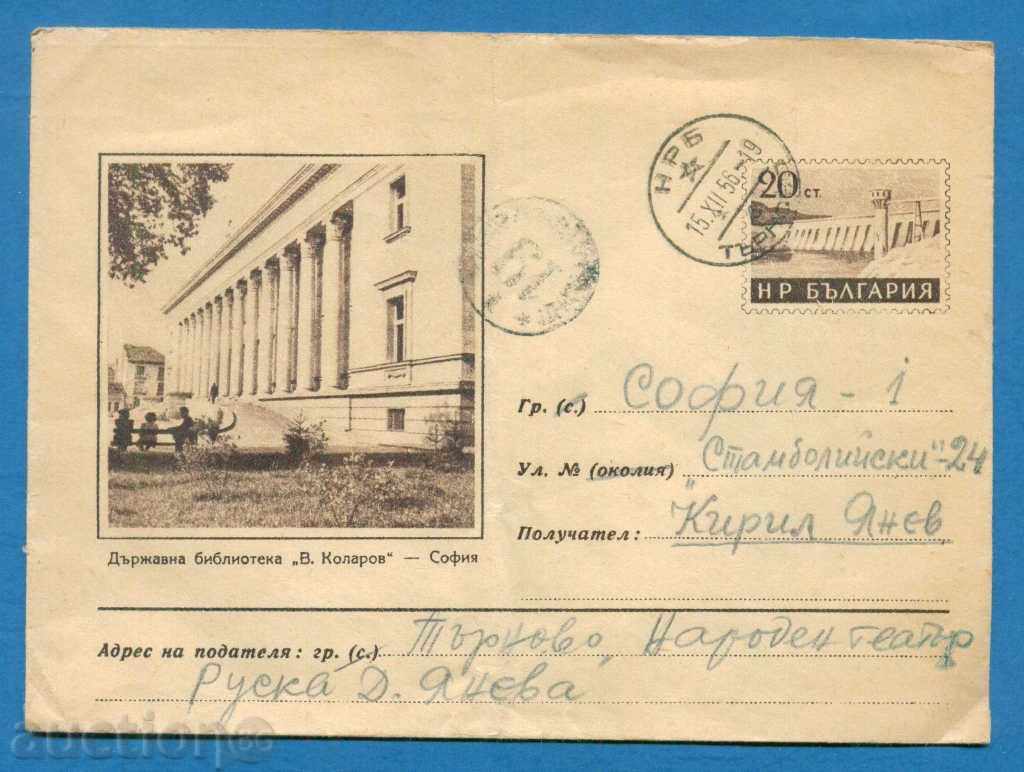 НРБ
15.XII.56.-19
ТЪРН
20 СТ.
НР БЪЛГАРИЯ
Гр. (с.) София - 1
Ул. № (околия) „Стамболийски"-24
Получател: Кирил Янев
Държавна библиотека „В. Коларов" — София
Адрес на подателя: гр. (с.) Търново, Народен театър
Руска Д. Янева
auction